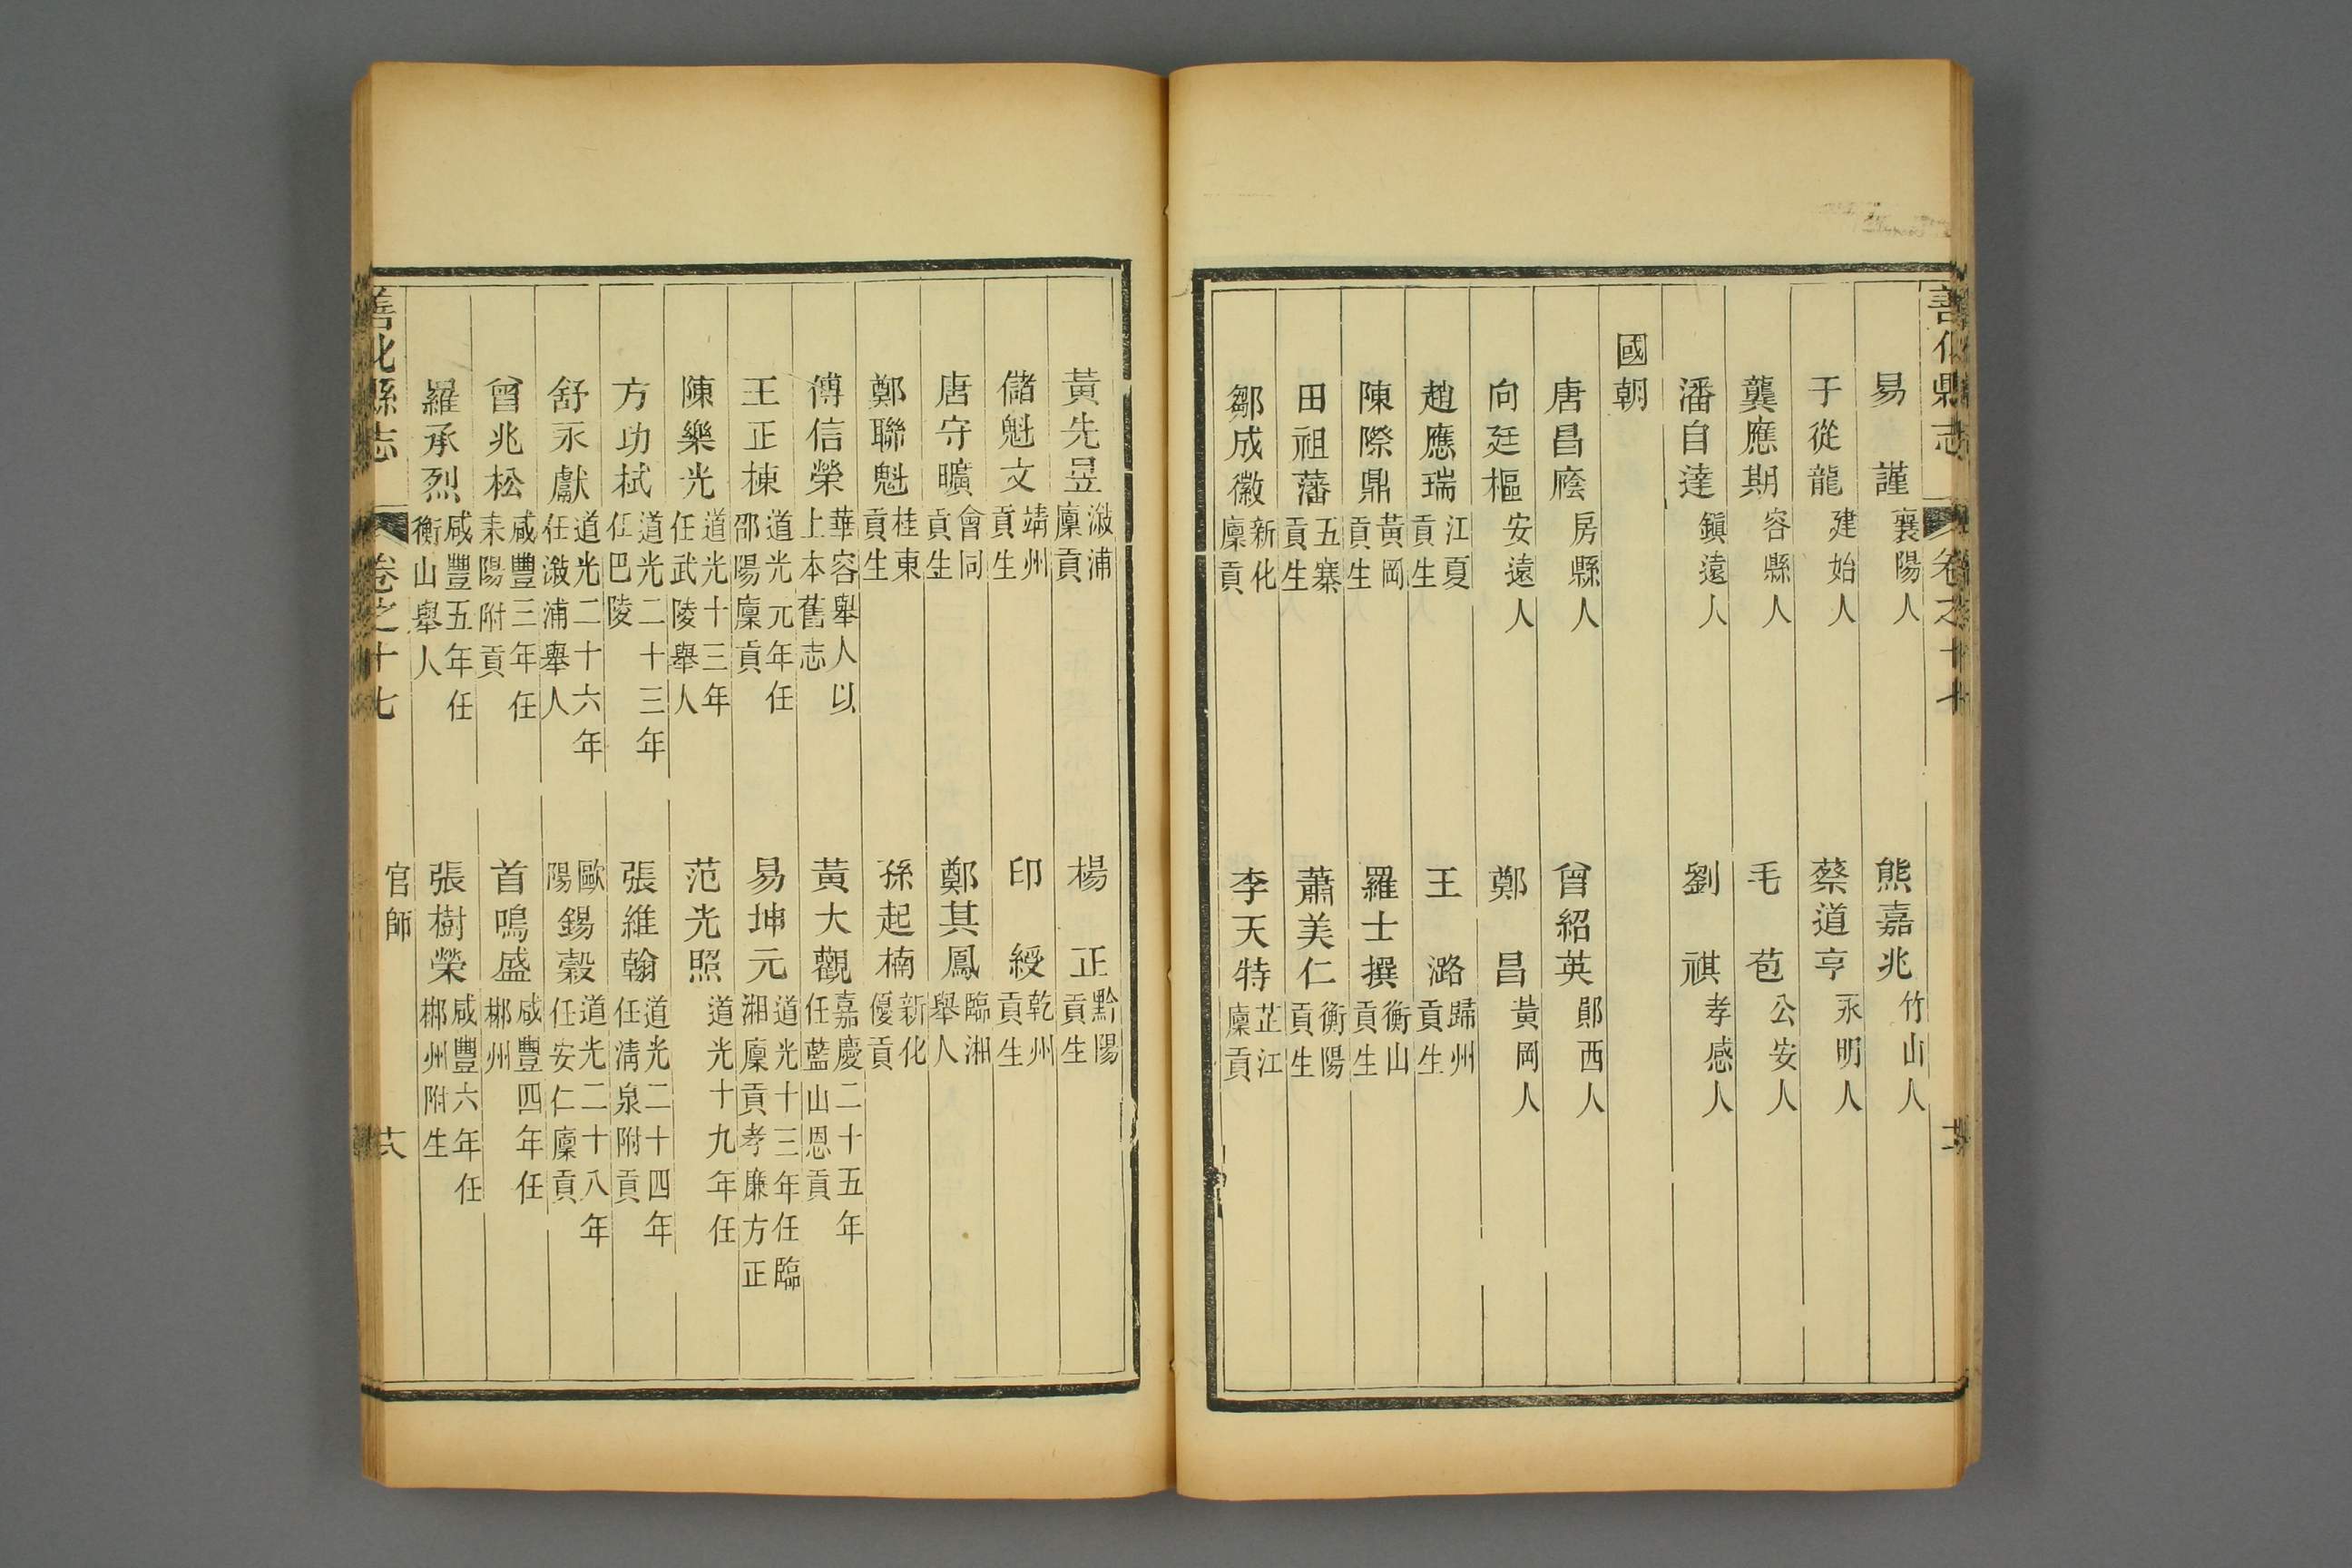 善化縣志 卷之十七
易 謹 襄陽人 熊嘉兆 竹山人
于從龍 建始人 蔡道亨 永明人
龔應期 容縣人 毛 苞 公安人
潘自達 鎭遠人 劉 祺 孝感人
國朝
唐昌廕 房縣人 曾紹英 鄖西人
向廷樞 安遠人 鄭 昌 黃岡人
趙應瑞 江夏貢生 王 潞 歸州貢生
陳際鼎 黃岡貢生 羅士撰 衡山貢生
田祖藩 五寨貢生 蕭美仁 衡陽貢生
鄒成徽 新化廩貢 李天特 芷江廩貢
黃先昱 漵浦廩貢 楊 正 黔陽貢生
儲魁文 靖州貢生 印 綬 乾州貢生
唐守曠 會同貢生 鄭其鳳 臨湘舉人
鄭聯魁 桂東貢生 孫起楠 新化優貢
傅信榮 華容舉人以上本舊志 黃大觀 嘉慶二十五年任藍山恩貢
王正棟 道光元年任邵陽廩貢 易坤元 道光十三年任臨湘廩貢孝廉方正
陳樂光 道光十三年任武陵舉人 范光照 道光十九年任
方功栻 道光二十三年任巴陵 張維翰 道光二十四年任淸泉附貢
舒永獻 道光二十六年任漵浦舉人 歐陽錫穀 道光二十八年任安仁廩貢
曾兆松 咸豐三年任耒陽附貢 首鳴盛 咸豐四年任郴州
羅承烈 咸豐五年任衡山舉人 張樹榮 咸豐六年任郴州附生
善化縣志 卷之十七 官師